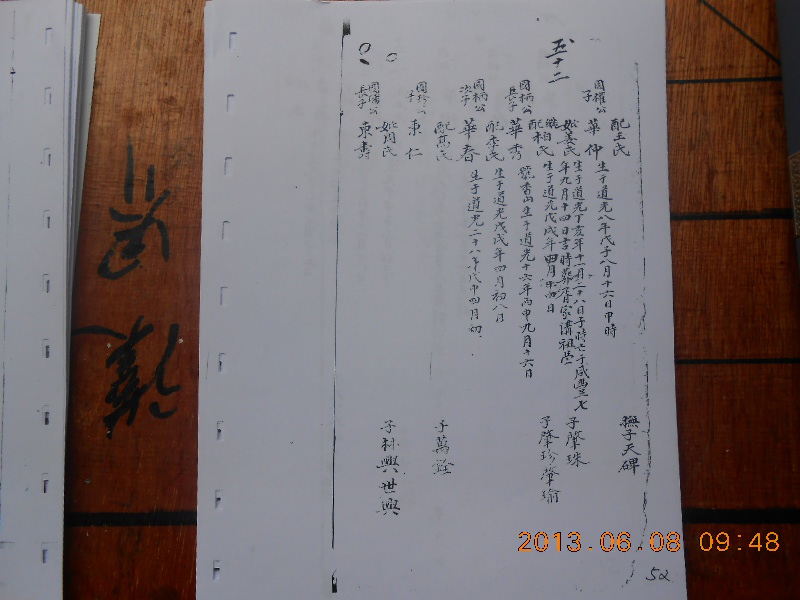 配王氏
撫子天碑
國權公
子
華仲
生于道光八年戊子八月十六日申時
子肇珠
妣姜氏
生于道光丁亥年十一月二十八日子時亡于咸豐七
年九月十四日吉時葬
祖塋
繼柏氏
生于道光戊戌年四月
日
子肇珍肇瑜
五十二
國柄公
長子
華秀
號香山生于道光十六年丙申九月十六日
配李氏
生于道光戊戌年四月初八日
國柄公
次子
華春
生于道光二十八年戊申四月初
配高氏
子萬銓
國珍公
子
東仁
妣周氏
子林興世興
長子
東壽
2013.06.08 09:48
52